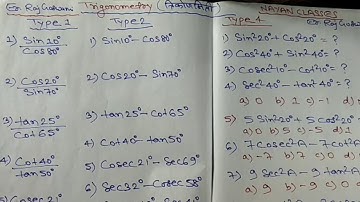 Er. Raj Gahani Trigonometry (त्रिकोणमिति)
Type-1
1) Sin10°/Cos80°
2) Cos20°/Sin70°
3) tan25°/Cot65°
4) Cot40°/tan50°
5) Cosec21°
Type 2
1) Sin10° - Cos80°
2) Cos20° - Sin70°
3) tan25° - Cot65°
4) Cot40° - tan50°
5) Cosec21° - Sec69°
6) Sec32° - Cosec58°
NAYAN CLASSES
Type-4
1) Sin²20° + Cos²20° = ?
2) Cos²40° + Sin²40° = ?
3) Cosec²10° - Cot²10° = ?
4) Sec²40° - tan²40° = ?
a) 0 b) 1 c) -1 d)
5) 5Sin²20° + 5Cos²20° =
a) 0 b) 5 c) -5 d) 1
6) 7Cosec²A - 7Cot²A
a) -7 b) 7 c) 0
7) 9Sec²A - 9tan²A
a) 9 b) -9 c) 0